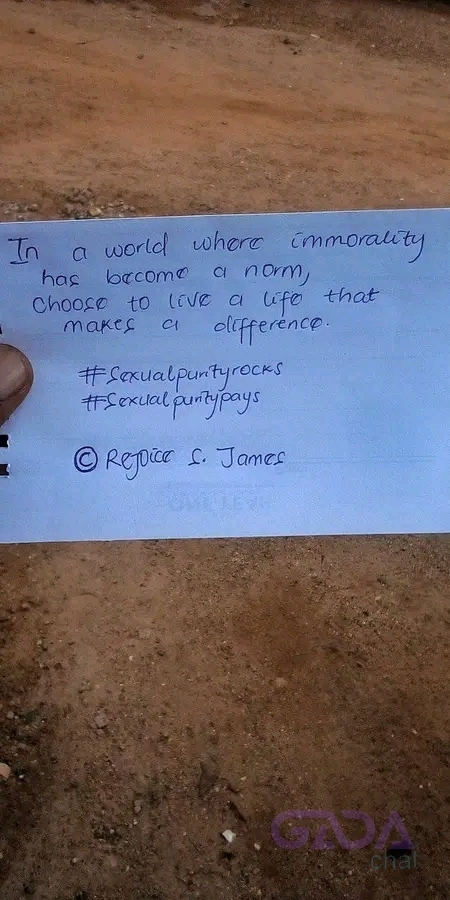 In a world where immorality
has become a norm,
Choose to live a life that
makes a difference.
#Sexualpurityrocks
#Sexualpuritypays
© Rejoice S. James
GEDA
chat